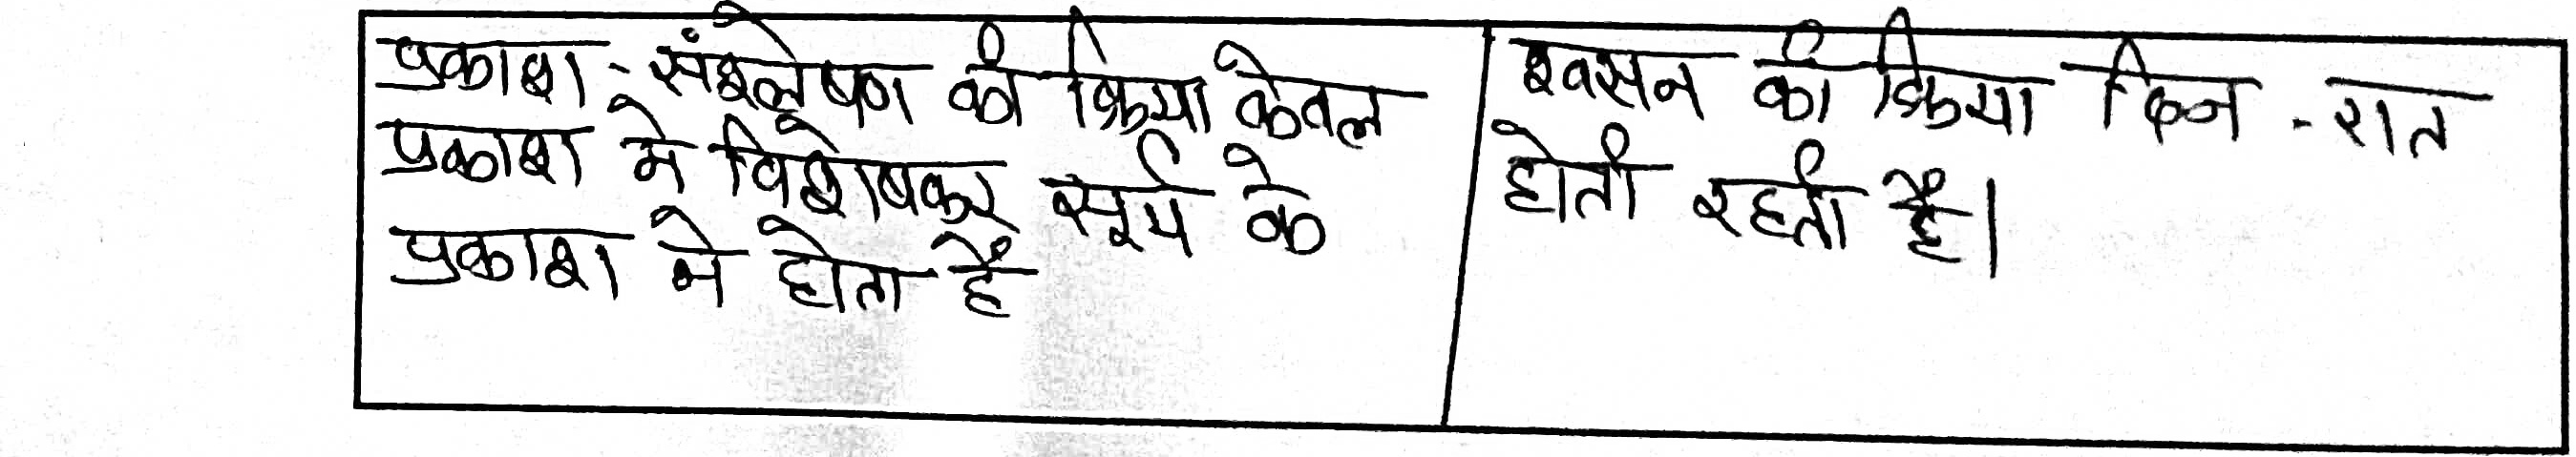 प्रकाश-संश्लेषण की क्रिया केवल
प्रकाश मे विशेषकर सूर्य के
प्रकाश मे होता है
श्वसन की क्रिया दिन-रात
होती रहती है।